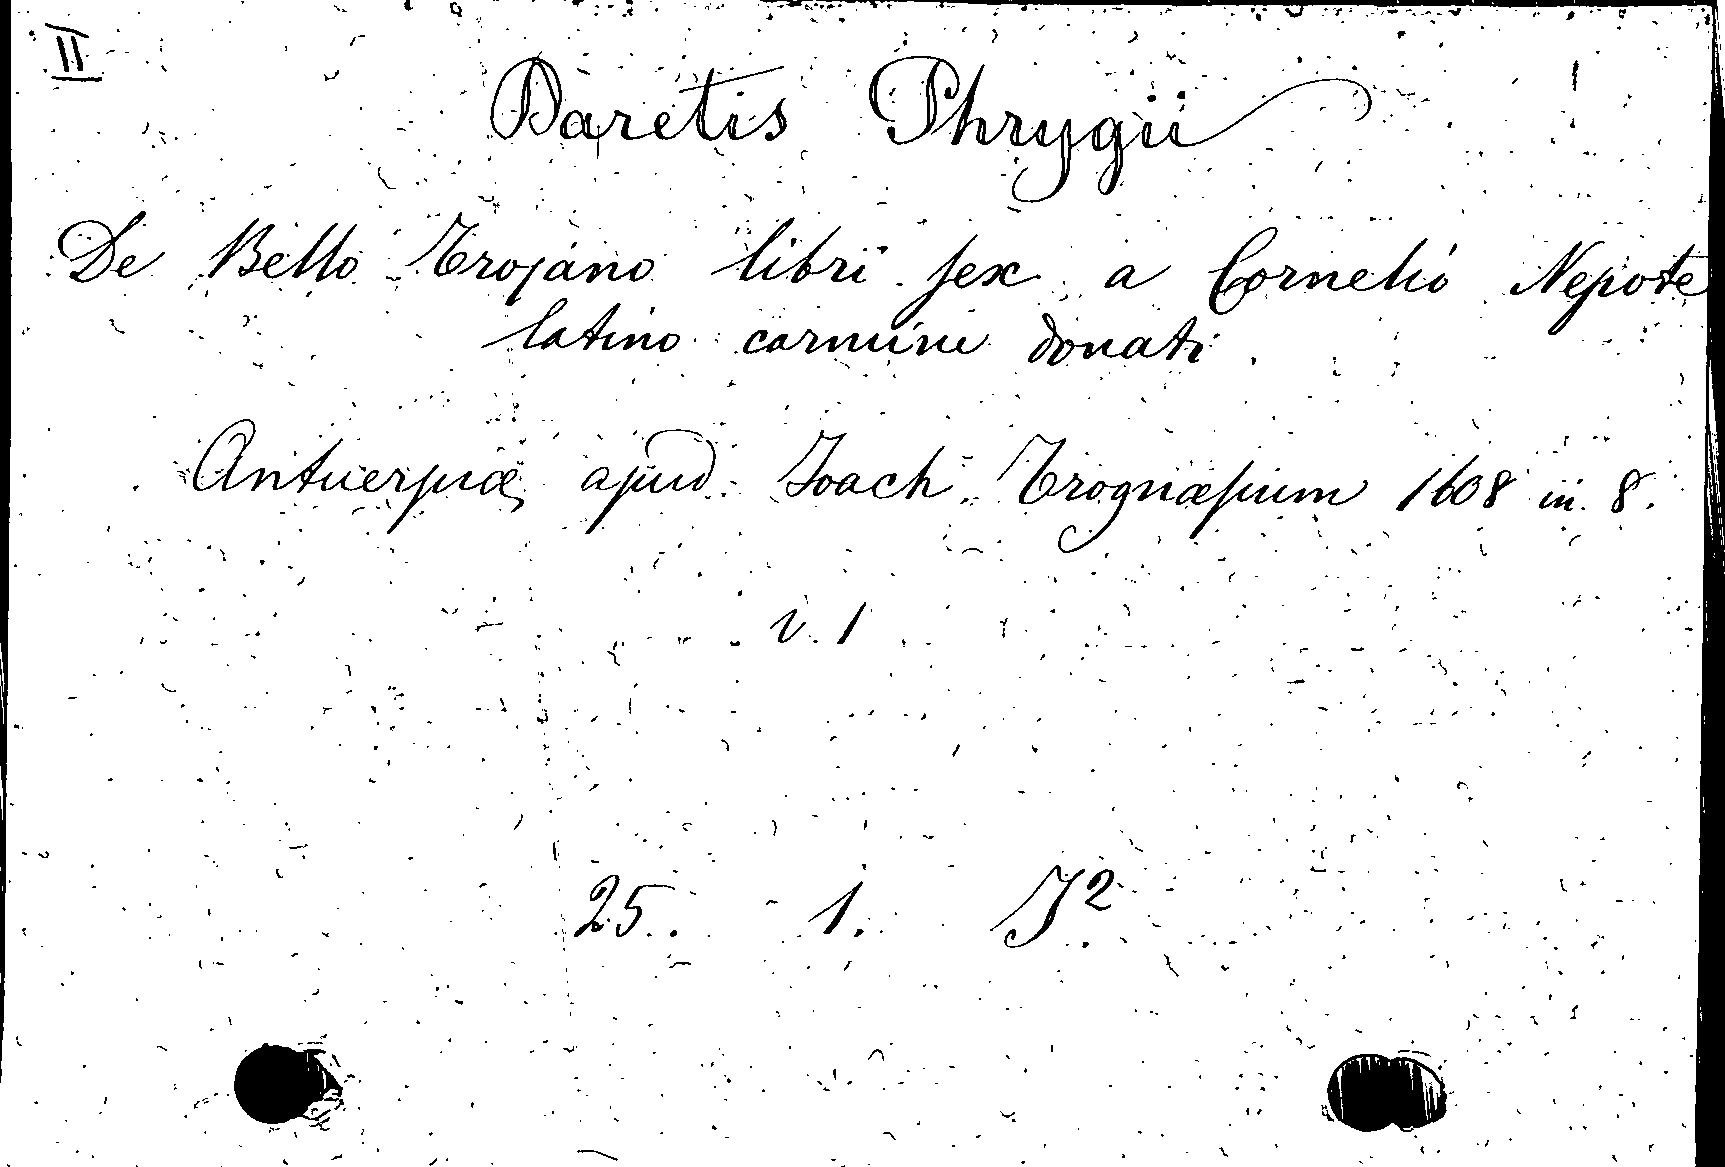 II
Daretis Phrygii
De Bello Trojano libri sex a Cornelio Nepote
latino carmine donati.
Antuerpiæ, apud Joach. Trognæsium 1608 in 8.
v. 1
25. 1. J²